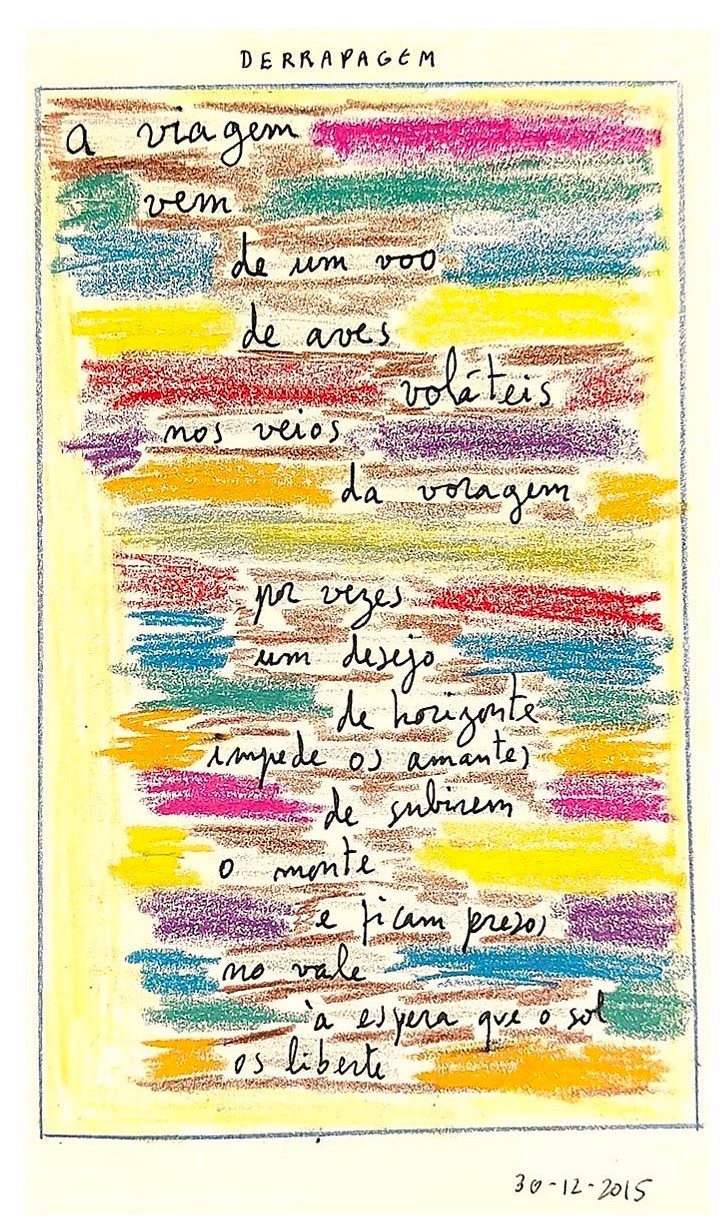 DERRAPAGEM
a viagem
vem
de um voo
de aves
voláteis
nos veios
da voragem
por vezes
um desejo
de horizonte
impede os amantes
de subirem
o monte
e ficam prezos
no vale
à espera que o sol
os liberte
30-12-2015